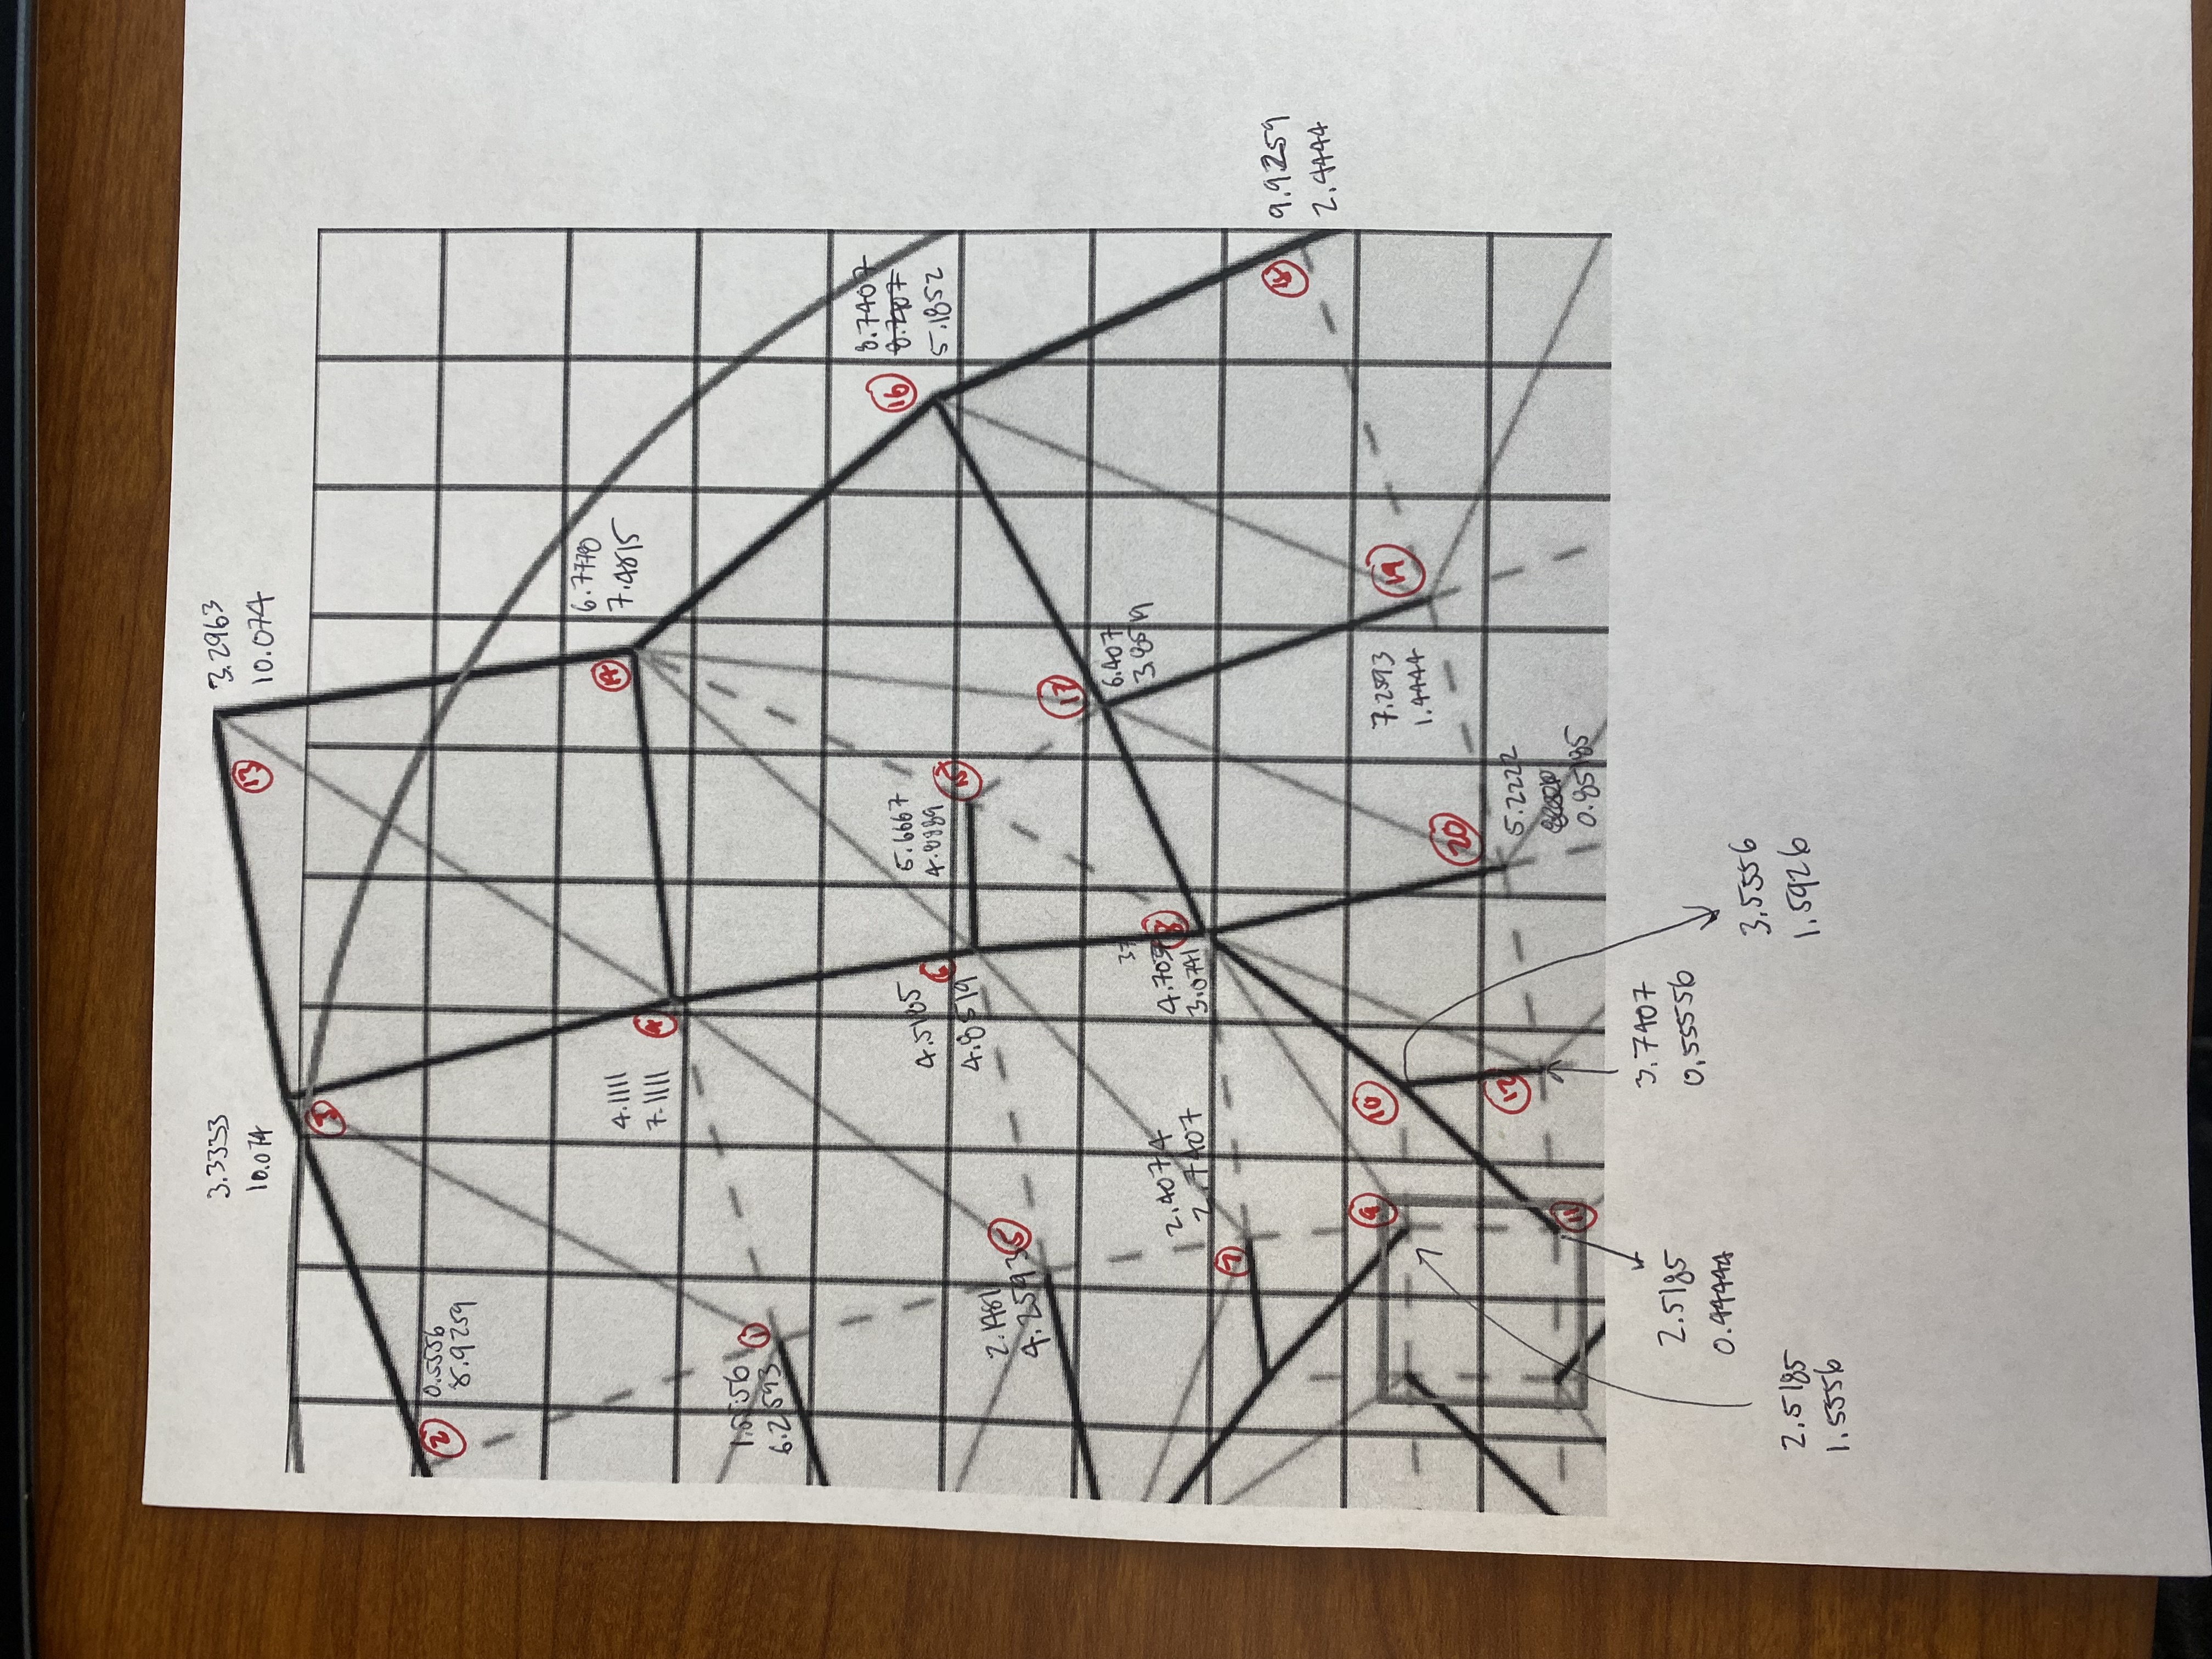 3.3333
10.074
3.2963
10.074
13
3
2
0.5556
8.9259
6.7778
7.4815
14
4.1111
7.1111
4
1.5556
6.2593
1
8.7407
8.7407
5.1852
16
4.5185
4.8519
6
5.6667
4.8889
15
2.1481
4.2593
5
17
6.407
3.8519
37
4.7037
3.0741
8
2.4074
2.7407
7
18
9.9259
2.4444
9
10
7.2593
1.4444
19
20
12
5.2222
0.85185
11
2.5185
0.44444
3.7407
0.55556
3.5556
1.5926
2.5185
1.5556